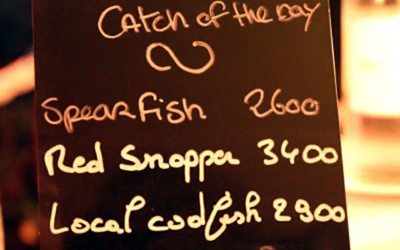 Catch of the Day
Spearfish 2600
Red Snapper 3400
Local codfish 2900